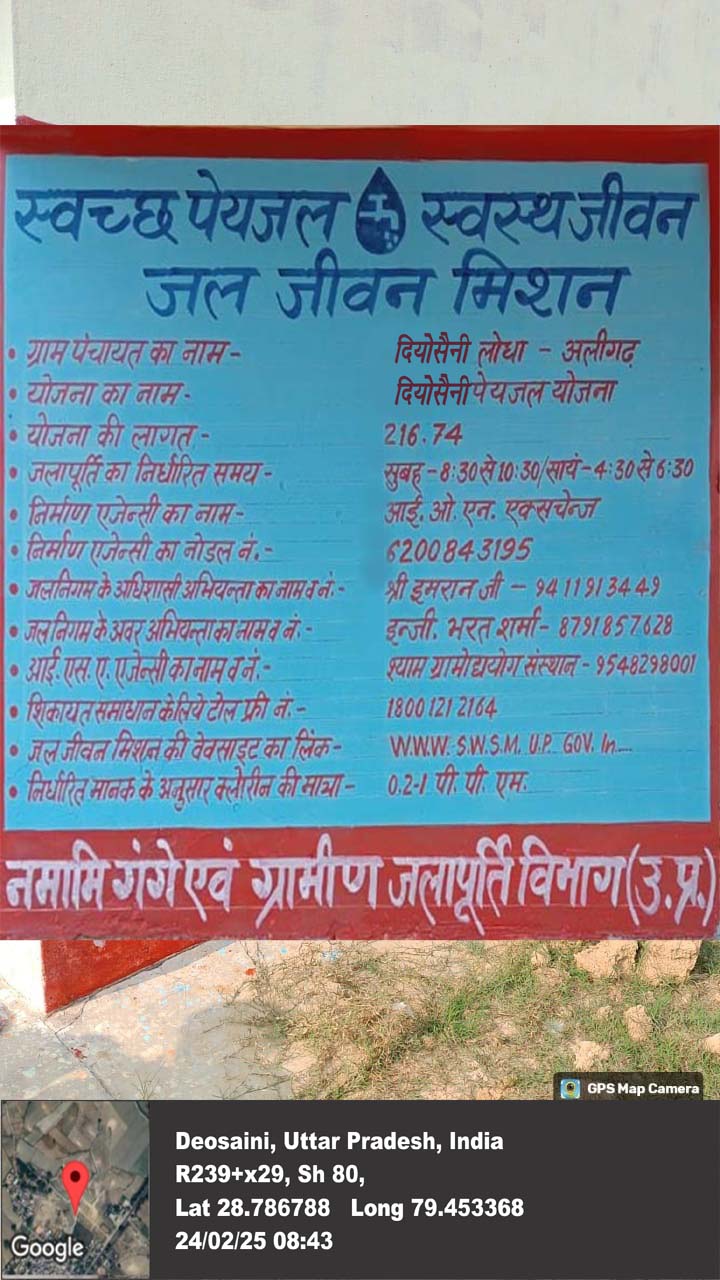 स्वच्छ पेयजल स्वस्थ जीवन
जल जीवन मिशन
• ग्राम पंचायत का नाम - दियोसैनी लोधा - अलीगढ़
• योजना का नाम - दियोसैनी पेयजल योजना
• योजना की लागत - 216.74
• जलापूर्ति का निर्धारित समय - सुबह - 8:30 से 10:30/सायं - 4:30 से 6:30
• निर्माण एजेन्सी का नाम - आई. ओ. एन. एक्सचेन्ज
• निर्माण एजेन्सी का नोडल नं. - 6200843195
• जलनिगम के अधिशासी अभियन्ता का नाम व नं. - श्री इमरान जी - 9411913449
• जलनिगम के अवर अभियन्ता का नाम व नं. - इन्जी. भरत शर्मा - 8791857628
• आई. एस. ए. एजेन्सी का नाम व नं. - श्याम ग्रामोद्योग संस्थान - 9548298001
• शिकायत समाधान के लिये टोल फ्री नं. - 1800 121 2164
• जल जीवन मिशन की वेवसाइट का लिंक - W.W.W. S.W.S.M. U.P. GOV. In....
• निर्धारित मानक के अनुसार क्लोरीन की मात्रा - 0.2-1 पी. पी. एम.
नमामि गंगे एवं ग्रामीण जलापूर्ति विभाग (उ.प्र.)
GPS Map Camera
Deosaini, Uttar Pradesh, India
R239+x29, Sh 80,
Lat 28.786788 Long 79.453368
24/02/25 08:43
Google